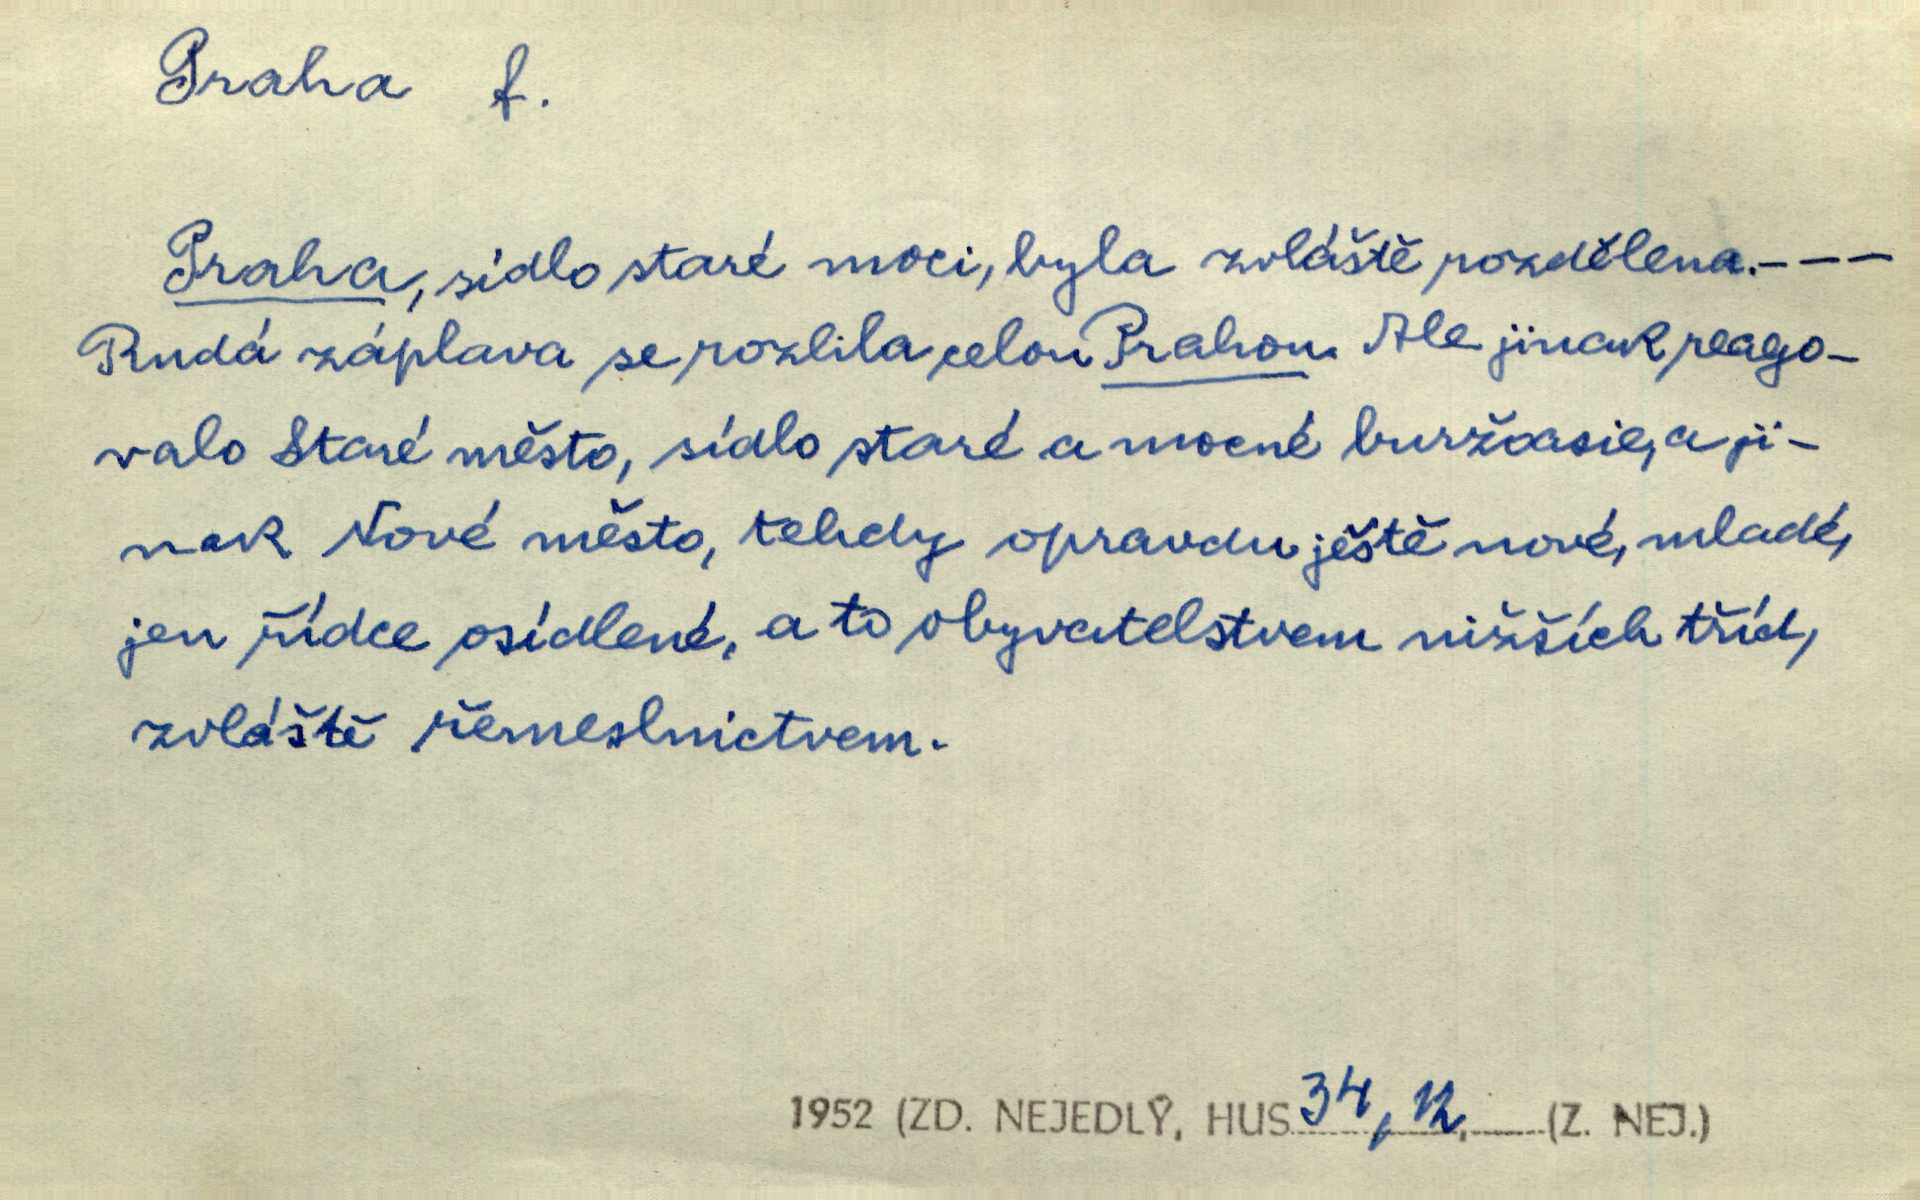 Praha f.
Praha, sídlo staré moci, byla zvláště rozdělena.---
Rudá záplava se rozlila celou Prahou. Ale jinak reago-
valo Staré město, sídlo staré a mocné buržoasie, a ji-
nak Nové město, tehdy opravdu ještě nové, mladé,
jen řídce osídlené, a to obyvatelstvem nižších tříd,
zvláště řemeslnictvem.
1952 (ZD. NEJEDLÝ, HUS 34, 12, (Z. NEJ.)